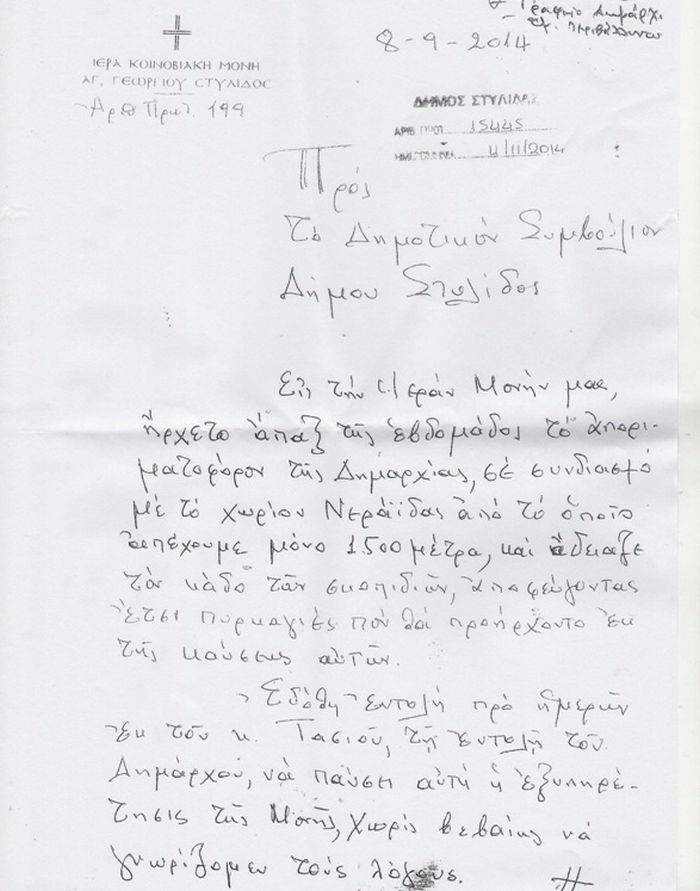 Γραφείο Δημάρχ
8-9-2014
ΙΕΡΑ ΚΟΙΝΟΒΙΑΚΗ ΜΟΝΗ
ΑΓ. ΓΕΩΡΓΙΟΥ ΣΤΥΛΙΔΟΣ
Αρθ Πρωτ. 199
ΔΗΜΟΣ ΣΤΥΛΙΔΑΣ
ΑΡΙΘ ΠΡΩΤ. 15445
ΗΜΕΡΟΜΗΝΙΑ 4/11/2014
Πρός
τό Δημοτικόν Συμβούλιον
Δήμου Στυλίδος
Εἰς τήν Ἱεράν Μονήν μας,
ἤρχετο ἅπαξ τῆς ἑβδομάδος τό ἀπορι-
ματοφόρον τῆς Δημαρχίας, σέ συνδιασμό
μέ τό χωρίον Νεράϊδας ἀπό τό ὁποῖο
ἀπέχουμε μόνο 1.500 μέτρα, καί ἄδειαζε
τόν κάδο τῶν σκοπιδιῶν, ἀποφεύγοντας
ἔτσι πυρκαγιές πού θά προήρχοντο ἐκ
τῆς καύσεως αὐτῶν.
Ἐδόθη ἐντολή πρό ἡμερῶν
ἐκ τοῦ κ. Τασιοῦ, τῇ ἐντολῇ τοῦ
Δημάρχου, νά παύσῃ αὐτή ἡ ἐξυπηρέ-
τησις τῆς Μονῆς, χωρίς βεβαίως νά
γνωρίζομεν τούς λόγους.